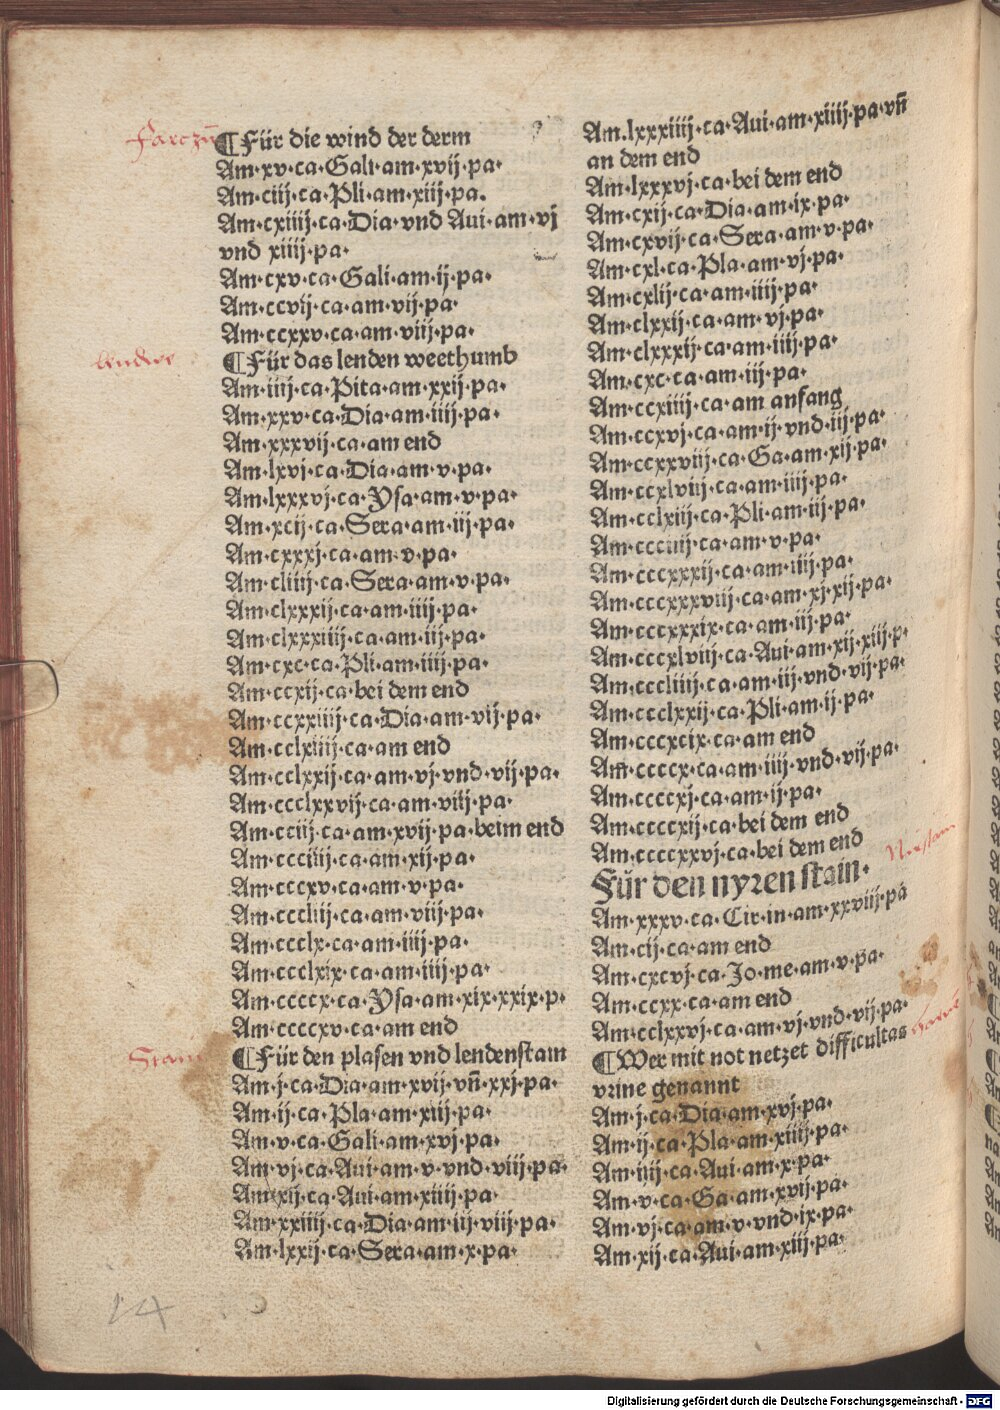 ¶ Für die wind der derm
Am·xv·ca·Gali·am·xvij·pa·
Am·ciij·ca·Pli·am·xiij·pa.
Am·cxiiij·ca·Dia·vnd Aui·am·vj
vnd xiiij·pa·
Am·cxv·ca·Gali·am·ij·pa·
Am·ccvij·ca·am·vij·pa·
Am·ccxxv·ca·am·viij·pa·
lenden
¶ Für das lenden weethumb
Am·iiij·ca·Pita·am·xxij·pa·
Am·xxv·ca·Dia·am·iiij·pa·
Am·xxxvij·ca·am end
Am·lxvj·ca·Dia·am·v·pa·
Am·lxxxvj·ca·Ysa·am·v·pa·
Am·xcij·ca·Sera·am·iij·pa·
Am·cxxxj·ca·am·v·pa·
Am·cliiij·ca·Sera·am·v·pa·
Am·clxxxij·ca·am·iiij·pa·
Am·clxxxiiij·ca·am·iij·pa·
Am·cxc·ca·Pli·am·iiij·pa·
Am·ccxij·ca·bei dem end
Am·ccxxiiij·ca·Dia·am·vij·pa·
Am·cclxiiij·ca·am end
Am·cclxxij·ca·am·vj·vnd·vij·pa·
Am·ccclxxvij·ca·am·viij·pa·
Am·cciij·ca·am·xvij·pa·beim end
Am·ccciiij·ca·am·xij·pa·
Am·cccxv·ca·am·v·pa·
Am·cccliij·ca·am·viij·pa·
Am·ccclx·ca·am·iiij·pa·
Am·ccclxix·ca·am·iiij·pa·
Am·ccccx·ca·Ysa·am·xix·xxix·p·
Am·ccccxv·ca·am end
Stain
¶ Für den plasen vnd lendenstain
Am·j·ca·Dia·am·xvij·vn̄·xxj·pa·
Am·ij·ca·Pla·am·xiij·pa·
Am·v·ca·Gali·am·xvj·pa·
Am·vj·ca·Aui·am·v·vnd·viij·pa·
Am·xij·ca·Aui·am·xiiij·pa·
Am·xxiiij·ca·Dia·am·iij·viij·pa·
Am·lxxij·ca·Sera·am·x·pa·
Am.lxxxiiij·ca·Aui·am·xiiij·pa·vn̄
an dem end
Am·lxxxvj·ca·bei dem end
Am·cxij·ca·Dia·am·ix·pa·
Am·cxvij·ca·Sera·am·v·pa·
Am·cxl·ca·Pla·am·vj·pa·
Am·cxlij·ca·am·iiij·pa·
Am·clxxij·ca·am·vj·pa·
Am·clxxxij·ca·am·iiij·pa·
Am·cxc·ca·am·iij·pa·
Am·ccxiiij·ca·am anfang
Am·ccxvj·ca·am·ij·vnd·iij·pa·
Am·ccxxviij·ca·Ga·am·xij·pa·
Am·ccxlviij·ca·am·iiij·pa·
Am·cclxiij·ca·Pli·am·iij·pa·
Am·ccciiij·ca·am·v·pa·
Am·cccxxxij·ca·am·iiij·pa·
Am·cccxxxviij·ca·am·xj·xij·pa·
Am·cccxxxix·ca·am·iij·pa·
Am·cccxlviij·ca·Aui·am·xij·xiij·p·
Am·cccliiij·ca·am·iij·vnd·vij·pa·
Am·ccclxxij·ca·Pli·am·ij·pa·
Am·cccxcix·ca·am end
Am·ccccx·ca·am·iiij·vnd·vij·pa·
Am·ccccxj·ca·am·ij·pa·
Am·ccccxij·ca·bei dem end
Am·ccccxxvj·ca·bei dem end
Für den nyren stain·
Am·xxxv·ca·Cir·in·am·xxviij·pa
Am·cij·ca·am end
Am·cxcvj·ca·Jo·me·am·v·pa·
Am·ccxx·ca·am end
Am·cclxxvj·ca·am·vj·vnd·vij·pa·
¶ Wer mit not netzet difficultas
vrine genannt
Am·j·ca·Dia·am·xvj·pa·
Am·ij·ca·Pla·am·xiiij·pa·
Am·iiij·ca·Aui·am·x·pa·
Am·v·ca·Ga·am·xvij·pa·
Am·vj·ca·am·v·vnd·ix·pa·
Am·xij·ca·Aui·am·xiij·pa·
14
Digitalisierung gefördert durch die Deutsche Forschungsgemeinschaft - DFG